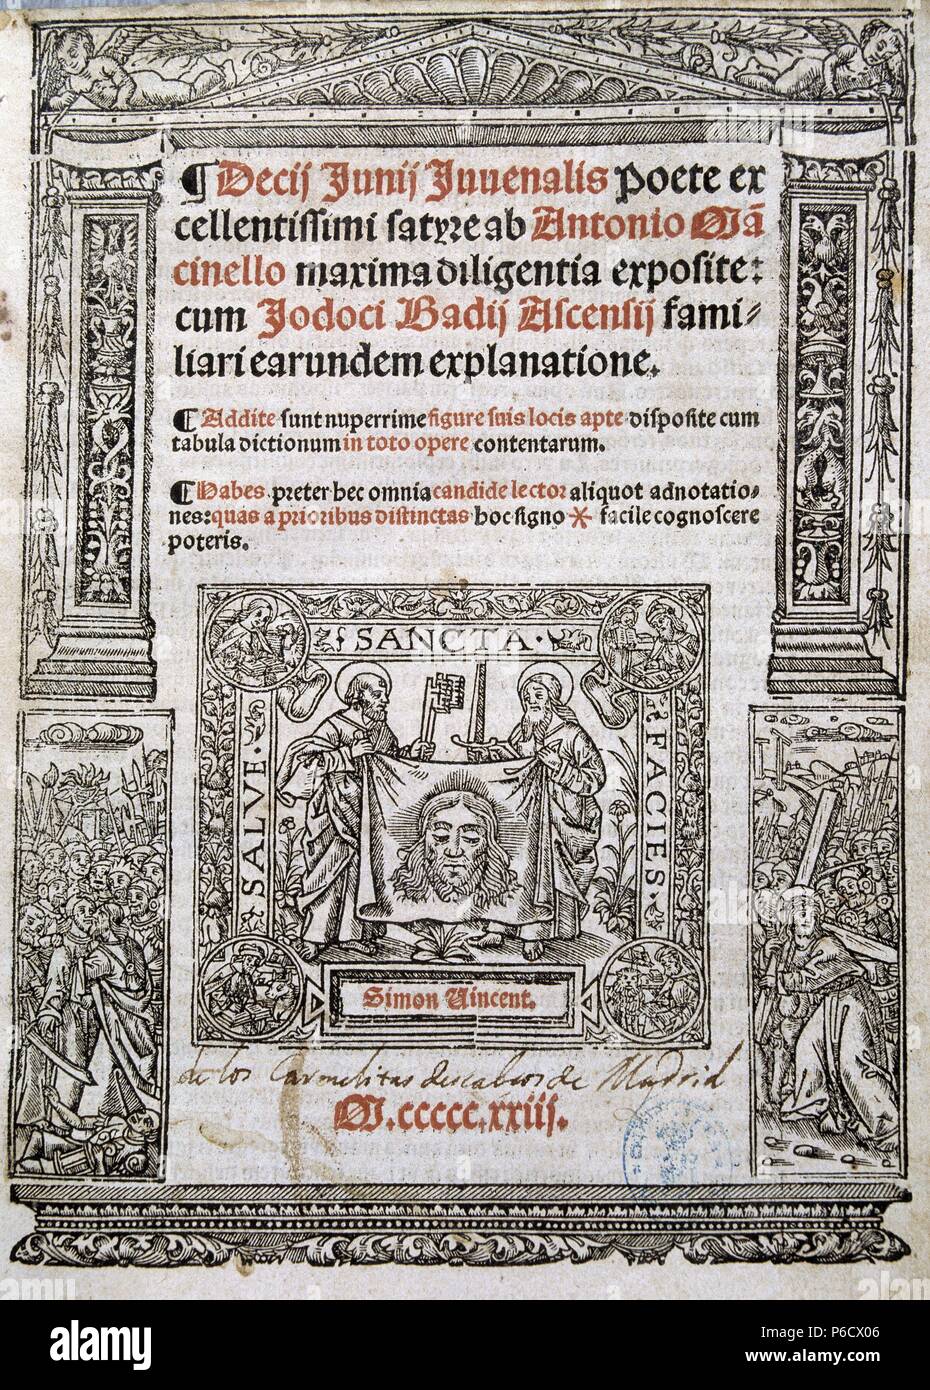 ¶ Decij Junij Juuenalis poete ex
cellentissimi satyre ab Antonio Mā
cinello maxima diligentia exposite:
cum Jodoci Badij Ascensij fami⸗
liari earundem explanatione.
¶ Addite sunt nuperrime figure suis locis apte disposite cum
tabula dictionum in toto opere contentarum.
¶ Habes preter hec omnia candide lector aliquot adnotatio⸗
nes: quas a prioribus distinctas hoc signo * facile cognoscere
poteris.
SALVE · SANCTA · FACIES ·
Simon Vincent.
de los Carmelitas descalços de Madrid
M.ccccc.xxiij.
alamy
Image ID: P6CX06
www.alamy.com